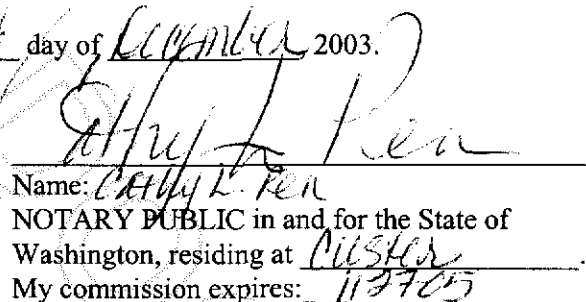 day of December 2003.
Cathy L Pen
Name: Cathy L. Pen
NOTARY PUBLIC in and for the State of
Washington, residing at Custer.
My commission expires: 112705